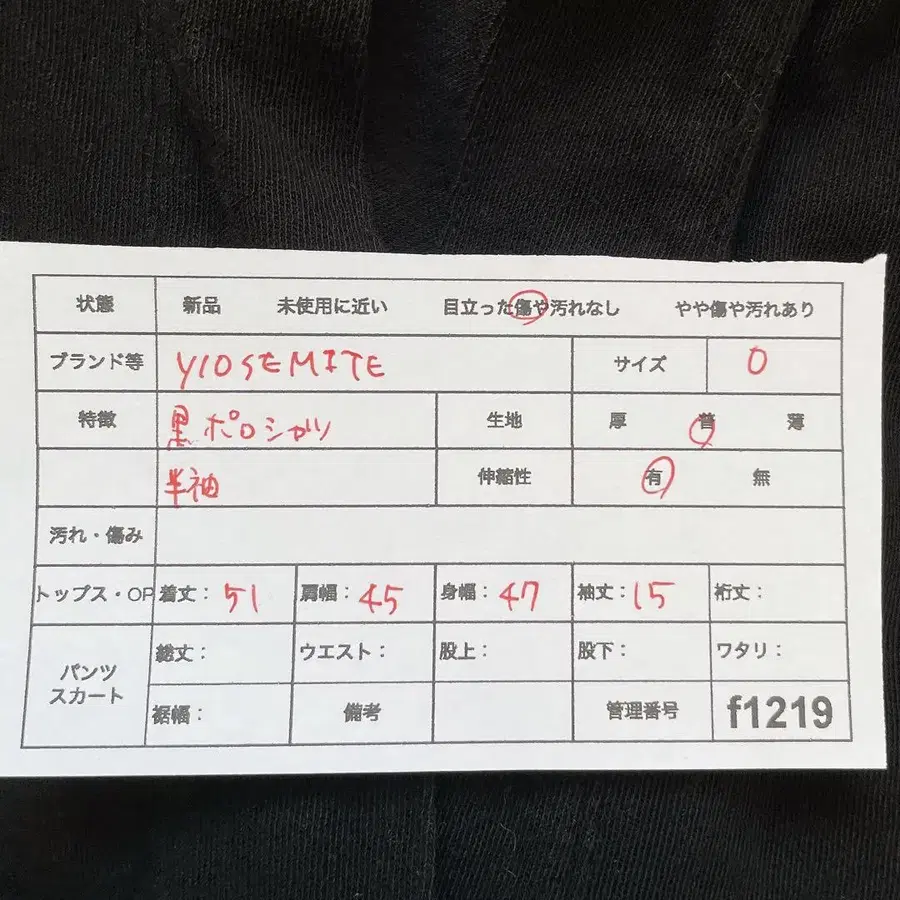 状態 新品 未使用に近い 目立った傷や汚れなし やや傷や汚れあり
ブランド等 YIOSEMITE サイズ 0
特徴 黒ポロシャツ 生地 厚 普 薄
半袖 伸縮性 有 無
汚れ・傷み
トップス・OP 着丈: 51 肩幅: 45 身幅: 47 袖丈: 15 裄丈:
パンツ
スカート
総丈: ウエスト: 股上: 股下: ワタリ:
裾幅: 備考 管理番号 f1219